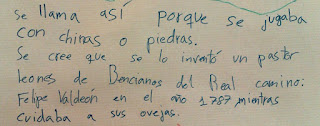 se llama así porque se jugaba
con chinas o piedras.
Se cree que se lo inventó un pastor
leones de Bencianos del Real camino:
Felipe Valdeón en el año 1.787 mientras
cuidaba a sus ovejas.